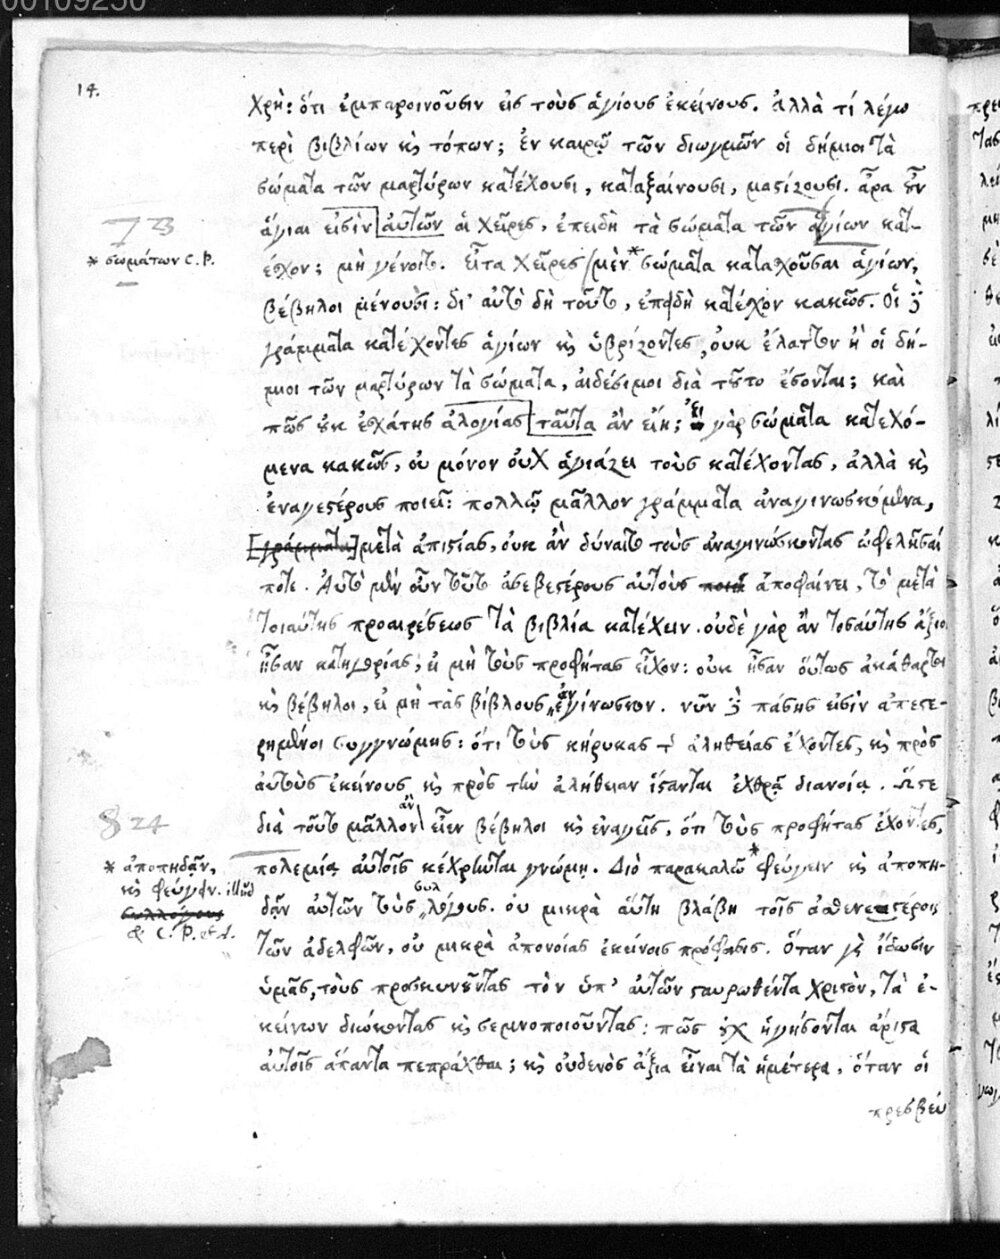 00109250
14.
χρὴ: ὅτι ἐμπαροινοῦσιν εἰς τοὺς ἁγίους ἐκείνους. ἀλλὰ τί λέγω
περὶ βιβλίων κỳ τόπων; ἐν καιρῷ τῶν διωγμῶν οἱ δήμιοι τὰ
σώματα τῶν μαρτύρων κατέχουσι, καταξαίνουσι, μαστίζουσι. ἆρα οὖν
ἅγιαι εἰσὶν αὐτῶν αἱ χεῖρες, ἐπειδὴ τὰ σώματα τῶν ἁγίων κατ-
έσχον; μὴ γένοιτο. Εἶτα χεῖρες μὲν * σώματα κατασχοῦσαι ἁγίων,
βέβηλοι μένουσι: δι' αὐτὸ δὴ τοῦτο, ἐπειδὴ κατέσχον κακῶς. Οἱ δὲ
γράμματα κατέχοντες ἁγίων κỳ ὑβρίζοντες, οὐκ ἔλαττον ἢ οἱ δή-
μιοι τῶν μαρτύρων τὰ σώματα, αἰδέσιμοι διὰ τοῦτο ἔσονται; καὶ
πῶς οὐκ ἐσχάτης ἀλογίας ταῦτα ἂν εἴη; εἰ γὰρ σώματα κατεχό-
μενα κακῶς, οὐ μόνον οὐχ ἁγιάζει τοὺς κατέχοντας, ἀλλὰ κỳ
ἐναγεστέρους ποιεῖ: πολλῷ μᾶλλον γράμματα ἀναγινωσκόμενα,
[γράμματα] μετὰ ἀπιστίας, οὐκ ἂν δύναιτο τοὺς ἀναγινώσκοντας ὠφελῆσαί
ποτε. Αὐτὸ μὲν οὖν τοῦτο ἀσεβεστέρους αὐτοὺς ποιεῖ ἀποφαίνει, τὸ μετὰ
τοιαύτης προαιρέσεως τὰ βιβλία κατέχειν. οὐδὲ γὰρ ἂν τοσαύτης ἄξιοι
ἦσαν κατηγορίας, εἰ μὴ τοὺς προφήτας εἶχον: οὐκ ἦσαν οὕτως ἀκάθαρτοι
κỳ βέβηλοι, εἰ μὴ τὰς βίβλους ἀνεγίνωσκον. νῦν δὲ πάσης εἰσὶν ἀπεστε-
ρημένοι συγγνώμης: ὅτι τοὺς κήρυκας τῆς ἀληθείας ἔχοντες, κỳ πρὸς
αὐτοὺς ἐκείνους κỳ πρὸς τὴν ἀλήθειαν ἵστανται ἐχθρᾷ διανοίᾳ. Ὥστε
διὰ τοῦτο μᾶλλον ἂν εἶεν βέβηλοι κỳ ἐναγεῖς, ὅτι τοὺς προφήτας ἔχοντες,
πολεμίᾳ αὐτοῖς κέχρηνται γνώμῃ. Διὸ παρακαλῶ * φεύγειν κỳ ἀποπη-
δᾶν αὐτῶν τοὺς συλλόγους. οὐ μικρὰ αὕτη βλάβη τοῖς ἀσθενεστέροις
τῶν ἀδελφῶν, οὐ μικρὰ ἀπονοίας ἐκείνοις πρόφασις. Ὅταν γὰρ ἴδωσιν
ὑμᾶς, τοὺς προσκυνοῦντας τὸν ὑπ' αὐτῶν σταυρωθέντα χριστὸν, τὰ ἐ-
κείνων διώκοντας κỳ σεμνοποιοῦντας: πῶς οὐχ ἡγήσονται ἄριστα
αὐτοῖς ἅπαντα πεπρᾶχθαι; κỳ οὐδενὸς ἄξια εἶναι τὰ ἡμέτερα, ὅταν οἱ
πρεσβεύ
73
* σωμάτων C. P.
824
* ἀποπηδᾶν,
κỳ φεύγειν. illud
συλλόγους
& C. P. et A.